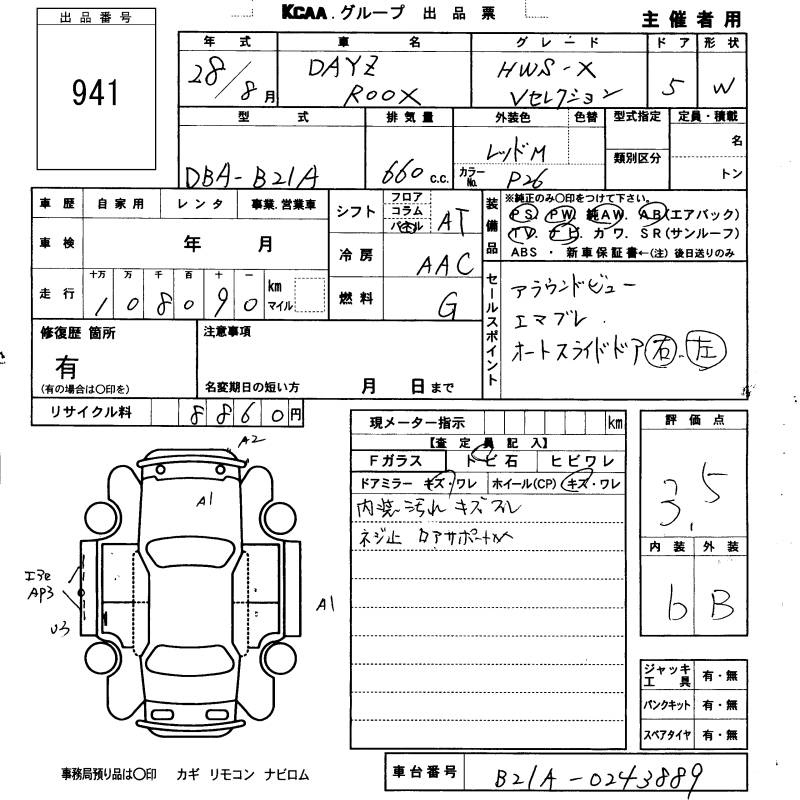 KCAA. グループ 出品票
主催者用
出品番号
941
年式
28/8月
車名
DAYZ
ROOX
グレード
HWS-X
Vセレクション
ドア
5
形状
W
型式
DBA-B21A
排気量
660 c.c.
外装色
レッドM
色替
カラーNo.
P26
型式指定
類別区分
定員・積載
名
トン
車歴 自家用 レンタ 事業.営業車
車検 年 月
走行 十万 万 千 百 十 一 km マイル
1 0 8 0 9 0
シフト フロア コラム パネル AT
冷房 AAC
燃料 G
装備品
※純正のみ〇印をつけて下さい。
PS. PW. 純AW. AB(エアバック)
TV. ナビ. カワ. SR(サンルーフ)
ABS ・ 新車保証書←(注) 後日送りのみ
セールスポイント
アラウンドビュー
エマブレ.
オートスライドドア 右.左
修復歴 箇所
有
(有の場合は〇印を)
注意事項
名変期日の短い方 月 日まで
リサイクル料 8 8 6 0 円
現メーター指示 km
【査定員記入】
Fガラス トビ石 ヒビワレ
ドアミラー キズ・ワレ ホイール(CP) キズ・ワレ
内装汚れ キズ スレ
ネジ止 ロアサポートメ
評価点
3.5
内装 外装
b B
A2
A1
エヨe
AP3
U3
A1
ジャッキ工具 有・無
パンクキット 有・無
スペアタイヤ 有・無
事務局預り品は〇印 カギ リモコン ナビロム
車台番号 B21A-0243889